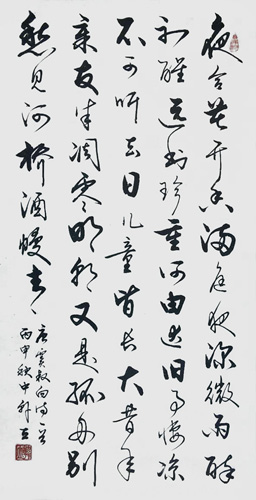 夜合花开香满庭夜深微雨醉
初醒远书珍重何由达旧事凄凉
不可听去日儿童皆长大昔年
亲友半凋零明朝又是孤舟别
愁见河桥酒幔青
唐窦叔向诗
丙申秋中